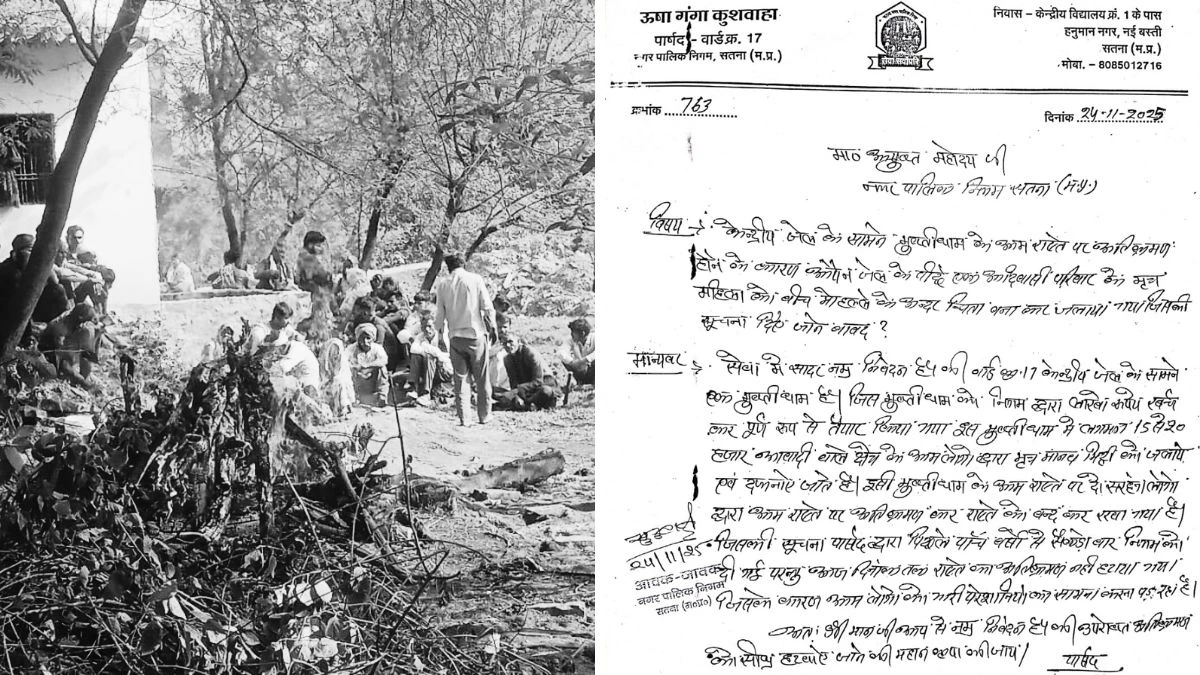 ऊषा गंगा कुशवाहा
पार्षद - वार्ड क्र. 17
नगर पालिक निगम, सतना (म.प्र.)
सेवा सर्वोपरि
निवास – केन्द्रीय विद्यालय क्रं. 1 के पास
हनुमान नगर, नई बस्ती
सतना (म.प्र.)
मोवा. – 8085012716
क्रमांक 763
दिनांक 24-11-2025
मा० आयुक्त महोदय जी
नगर पालिक निगम सतना (म.प्र.)
विषय → केन्द्रीय जेल के सामने मुक्तीधाम के आम रास्ते पर अतिक्रमण
होने के कारण जेल के पीछे एक आदिवासी परिवार के मृत
महिला को बीच मोहल्ले के अन्दर चिता बना कर जलाया गया जिसकी
सूचना दिये जाने बावद ?
मान्यवर → सेवा मे सादर नम्र निवेदन है की वार्ड क्र. 17 केन्द्रीय जेल के सामने
एक मुक्तीधाम है। जिस मुक्तीधाम को निगम द्वारा लाखो रूपये खर्च
कर पूर्ण रूप से तैयार किया गया इस मुक्तीधाम मे लगभग 15 से 20
हजार आबादी वाले क्षेत्र के आम लोगो द्वारा मृत मानव मिट्टी को जलाये
एवं दफनाऐ जाते है। इसी मुक्तीधाम के आम रास्ते पर लोगो
द्वारा आम रास्ते पर अतिक्रमण कर रास्ते को बन्द कर रखा गया है।
जिसकी सूचना पार्षद द्वारा पिछले पाँच वर्षो से सैकड़ो बार निगम को
दी गई परन्तु आज दिनांक तक रास्ते का अतिक्रमण नही हटाया गया।
जिसके कारण आम लोगो को भारी परेशानियो का सामना करना पड़ रहा है।
अतः श्री मान जी आप से नम्र निवेदन है की उपरोक्त अतिक्रमण
को शीघ्र हटवाऐ जाने की महान कृपा की जाय।
पार्षद
24/11/25
आवक-जावक
नगर पालिक निगम
सतना (म०प्र०)